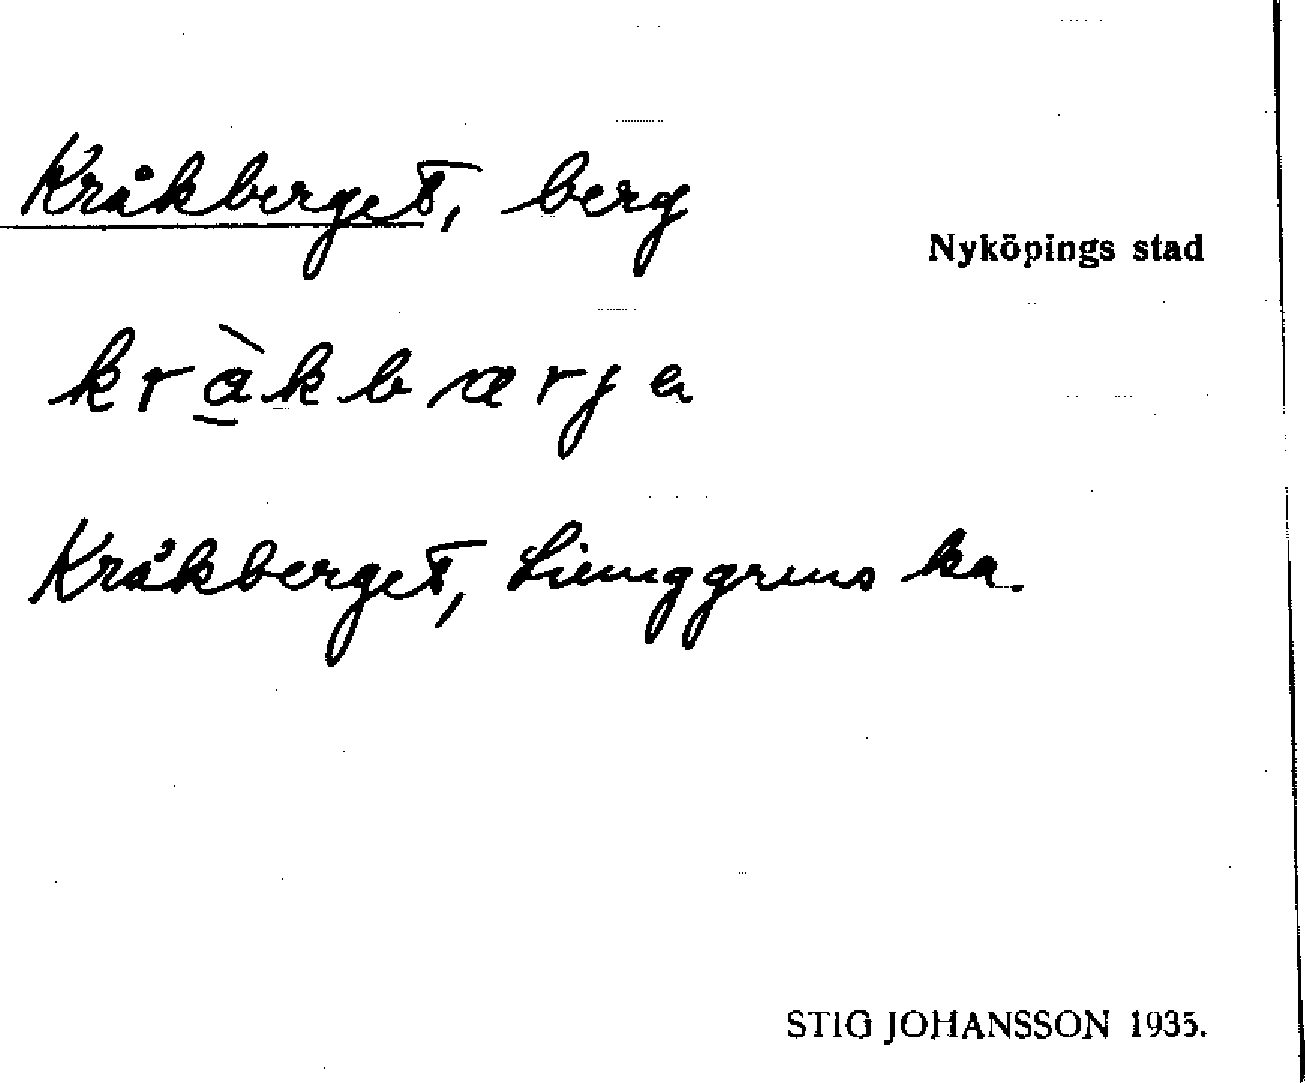 Kråkberget, berg
Nyköpings stad
kràkbærja
Kråkberget, Liunggrens ka.
STIG JOHANSSON 1935.